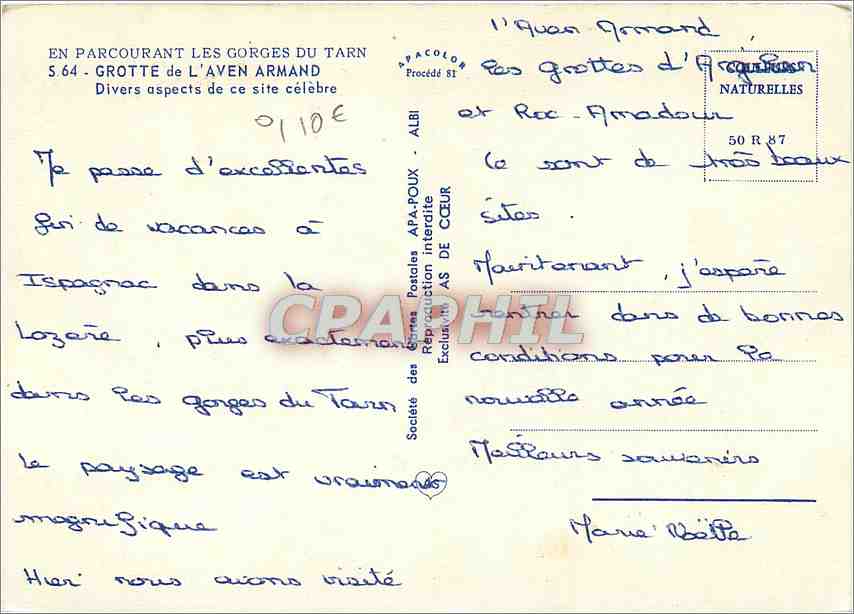 EN PARCOURANT LES GORGES DU TARN
S. 64 - GROTTE de L'AVEN ARMAND
Divers aspects de ce site célèbre
0,10€
Je passe d'excellentes
fin de vacances à
Ispagnac dans la
Lozère, plus exactement
dans les gorges du Tarn
Le paysage est vraiment
magnifique
Hier nous avons visité
APACOLOR
Procédé SI
Société des Cartes Postales APA-POUX - ALBI
Reproduction interdite
Exclusivité AS DE CŒUR
CPAPHIL
l'Aven Armand,
les grottes d'
et Roc-Amadour
Ce sont de très beaux
sites.
Maintenant, j'espère
rentrer dans de bonnes
conditions pour la
nouvelle année
Meilleurs souvenirs
Marie Noëlle
COULEURS
NATURELLES
50 R 87